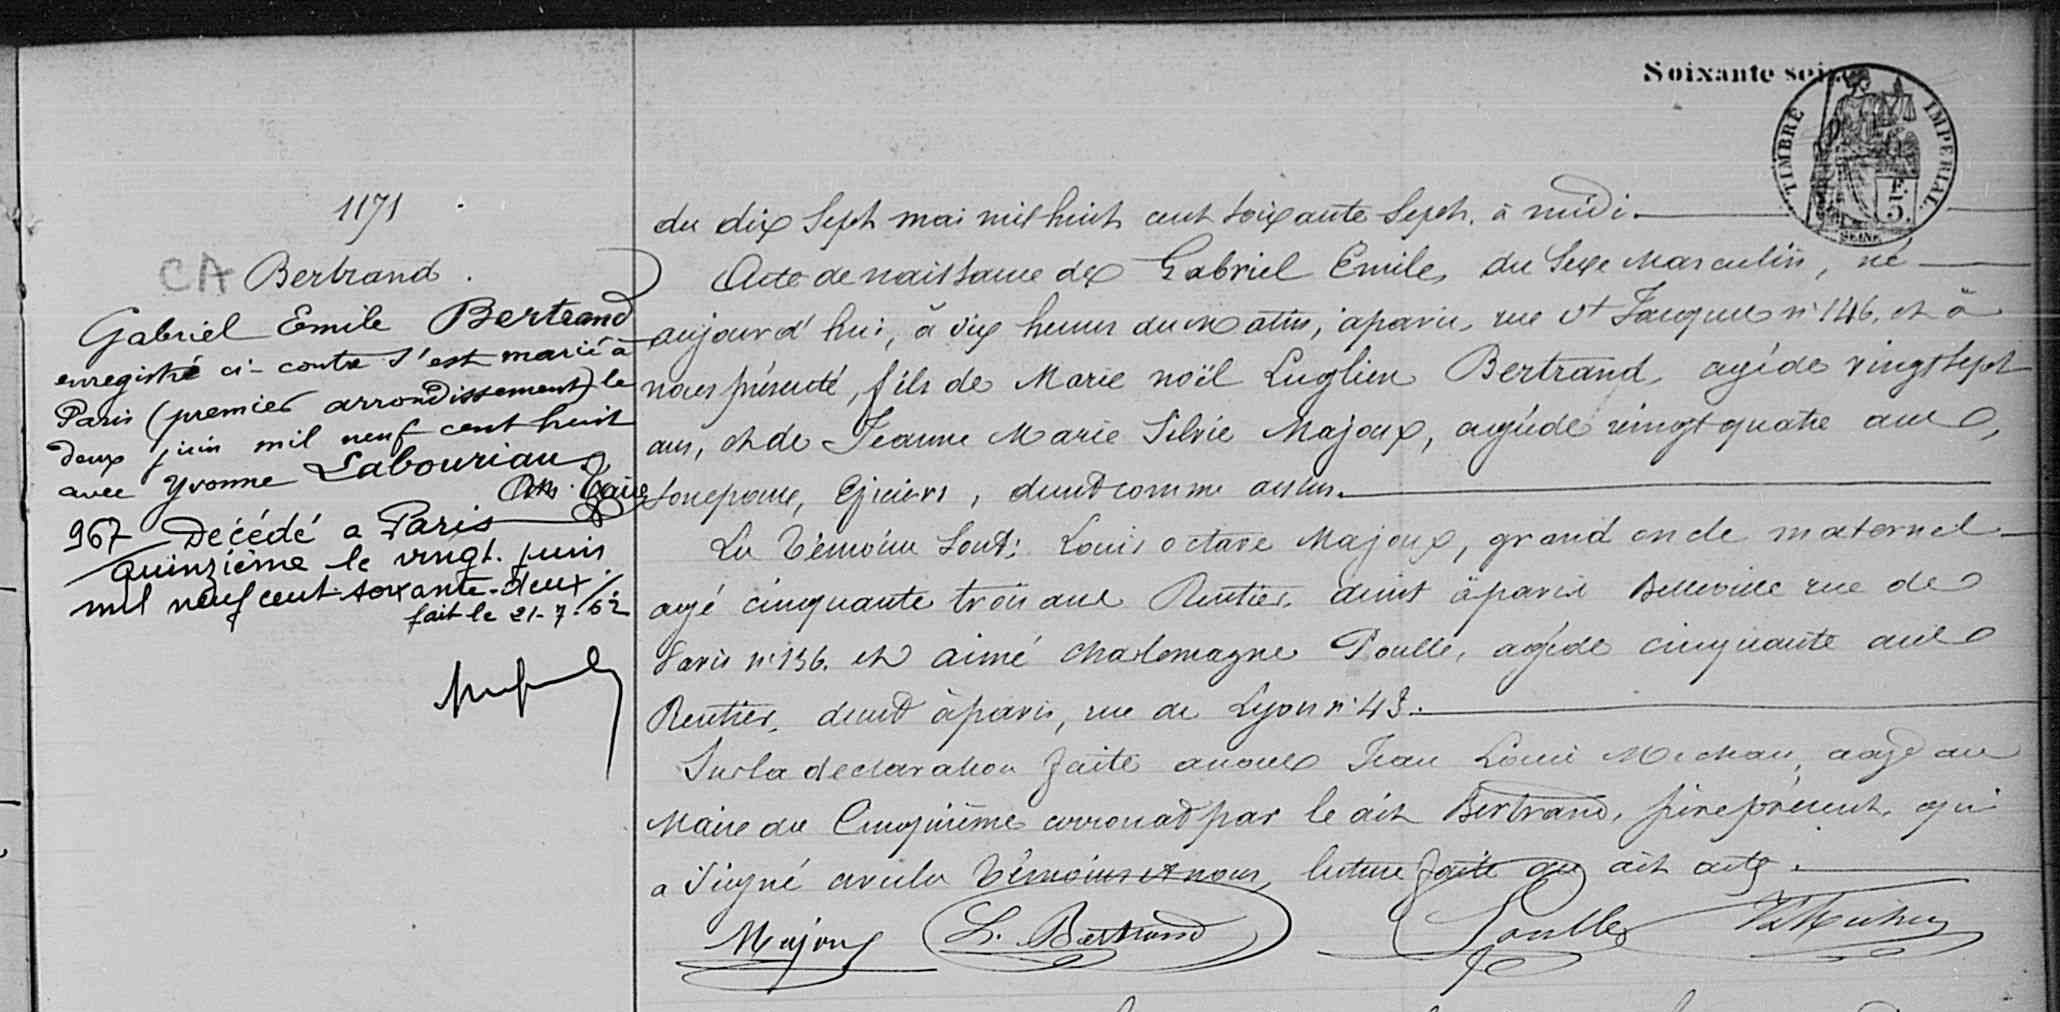 Soixante seize
TIMBRE IMPERIAL
SEINE
1171
CA Bertrand.
Gabriel Emile Bertrand
enregistré ci-contre s'est marié à
Paris (premier arrondissement) le
deux juin mil neuf cent huit
avec Yvonne Labouriau
967 Décédé a Paris
quinzième le vingt juin
mil neuf cent soixante-deux /.
fait le 21-7-62
du dix Sept mai mil huit cent soixante Sept. à midi.
Acte de naissance de Gabriel Emile, du Sexe Masculin, né
aujourd'hui, à dix heures du matin, à paris, rue St Jacques n° 146, et à
nous présenté, fils de Marie noël Luglien Bertrand, agé de vingt Sept
ans, et de Jeanne Marie Silvie Majoux, agée de vingt quatre ans,
son epouse, Epiciers, demt comme dessus.
Les témoins Sont: Louis octave Majoux, grand oncle maternel
agé cinquante trois ans Rentier, demt à paris Belleville rue de
Paris n° 136. et aimé charlemagne Poulle, agé de cinquante ans
Rentier, demt à paris, rue de Lyon n° 43.
Sur la declaration faite a nous Jean Louis Michau, adjt au
Maire du Cinquième arrondt par le dit Bertrand, père présent, qui
a Signé avec les témoins et nous, lecture faite du dit acte.
Majoux L. Bertrand Poulle